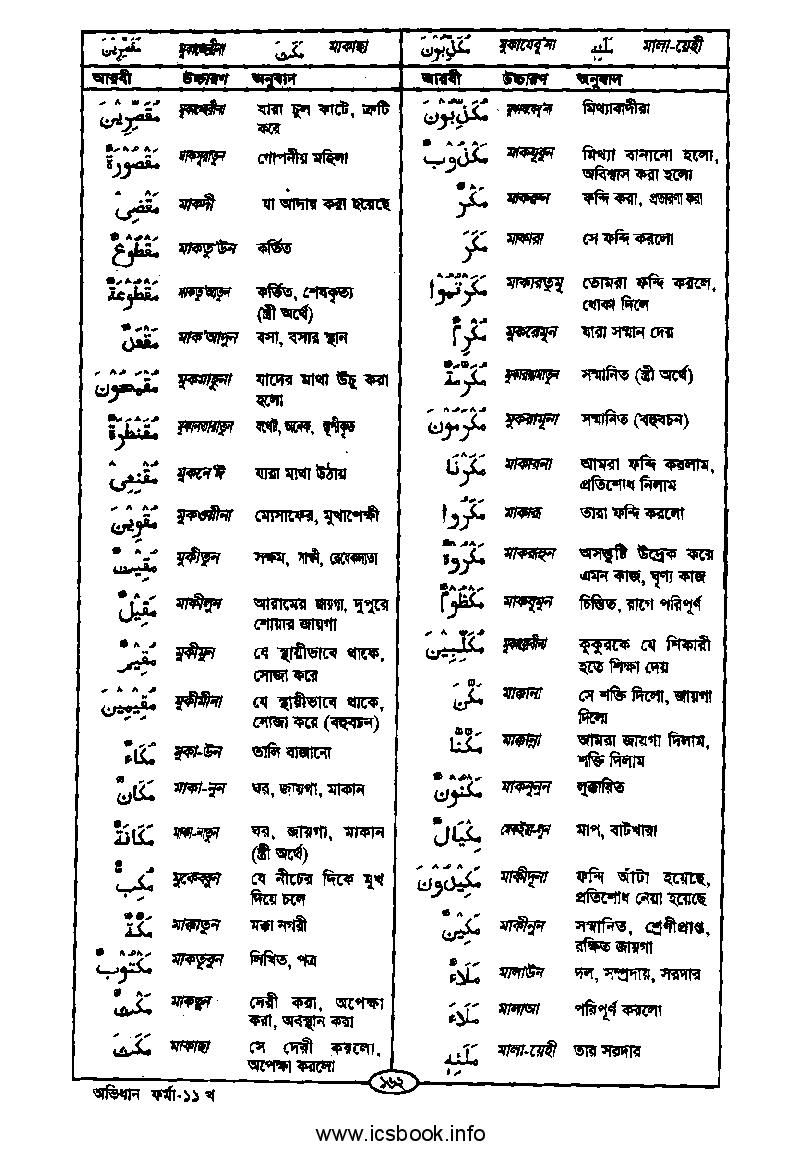 مُقَصِّرِيْنَ মুকাচ্ছেরীনা مَكَثَ মাকাছা
আরবী উচ্চারণ অনুবাদ
مُقَصِّرِيْنَ মুকাচ্ছেরীনা যারা চুল কাটে, ত্রুটি
করে
مَقْصُوْرَةٌ মাকসূরাতুন গোপনীয় মহিলা
مَقْضِىْ মাকদী যা আদায় করা হয়েছে
مَقْطُوْعٌ মাকতু'উন কর্তিত
مَقْطُوْعَةٌ মাকতু'আতুন কর্তিত, শেষকৃত্য
(স্ত্রী অর্থে)
مَقْعَدٌ মাক'আদুন বসা, বসার স্থান
مُقْمَحُوْنَ মুকমাহূনা যাদের মাথা উঁচু করা
হলো
مُقَنْطَرَةٌ মুকানতারাতুন যথেষ্ট, অনেক, স্তূপীকৃত
مُقْنِعِىْ মুকনে'ঈ যারা মাথা উঠায়
مُقْوِيْنَ মুকওয়ীনা মোসাফের, মুখাপেক্ষী
مُقِيْتٌ মুকীতুন সক্ষম, সাক্ষী, রেযেকদাতা
مَقِيْلٌ মাকীলুন আরামের জায়গা, দুপুরে
শোয়ার জায়গা
مُقِيْمٌ মুকীমুন যে স্থায়ীভাবে থাকে,
সোজা করে
مُقِيْمِيْنَ মুকীমীনা যে স্থায়ীভাবে থাকে,
সোজা করে (বহুবচন)
مُكَاءً মুকা-উন তালি বাজানো
مَكَانٌ মাকা-নুন ঘর, জায়গা, মাকান
مَكَانَةٌ মাকা-নাতুন ঘর, জায়গা, মাকান
(স্ত্রী অর্থে)
مُكِبٌّ মুকেব্বুন যে নীচের দিকে মুখ
দিয়ে চলে
مَكَّةٌ মাক্কাতুন মক্কা নগরী
مَكْتُوْبٌ মাকতুবুন লিখিত, পত্র
مَكْثٌ মাকছুন দেরী করা, অপেক্ষা
করা, অবস্থান করা
مَكَثَ মাকাছা সে দেরী করলো,
অপেক্ষা করলো
مُكَذِّبُوْنَ মুকাযেবূ'না مَلَئِهٖ মালা-য়েহী
আরবী উচ্চারণ অনুবাদ
مُكَذِّبُوْنَ মুকাযেবূ'ন মিথ্যাবাদীরা
مَكْذُوْبٌ মাকযুবুন মিথ্যা বানানো হলো,
অবিশ্বাস করা হলো
مَكْرٌ মাকরুন ফন্দি করা, প্রতারণা করা
مَكَرَ মাকারা সে ফন্দি করলো
مَكَرْتُمُوْا মাকারতুমু তোমরা ফন্দি করলে,
ধোকা দিলে
مُكْرِمٌ মুকরেমুন যারা সম্মান দেয়
مُكَرَّمَةٌ মুকাররামাতুন সম্মানিত (স্ত্রী অর্থে)
مُكْرَمُوْنَ মুকরামূনা সম্মানিত (বহুবচন)
مَكَرْنَا মাকারনা আমরা ফন্দি করলাম,
প্রতিশোধ নিলাম
مَكَرُوْا মাকারু তারা ফন্দি করলো
مَكْرُوْهٌ মাকরূহুন অসন্তুষ্টি উদ্রেক করে
এমন কাজ, ঘৃণ্য কাজ
مَكْظُوْمٌ মাকযূমুন চিন্তিত, রাগে পরিপূর্ণ
مُكَلِّبِيْنَ মুকাল্লেবীনা কুকুরকে যে শিকারী
হতে শিক্ষা দেয়
مَكَّنَ মাক্কানা সে শক্তি দিলো, জায়গা
দিলো
مَكَّنَّا মাক্কান্না আমরা জায়গা দিলাম,
শক্তি দিলাম
مَكْنُوْنٌ মাকনূনুন লুক্কায়িত
مِكْيَالٌ মেকইয়া-লুন মাপ, বাটখারা
مَكِيْدُوْنَ মাকীদূনা ফন্দি আঁটা হয়েছে,
প্রতিশোধ নেয়া হয়েছে
مَكِيْنٌ মাকীনুন সম্মানিত, শ্রেণীপ্রাপ্ত,
রক্ষিত জায়গা
مَلَاءٌ মালাউন দল, সম্প্রদায়, সরদার
مَلَاءَ মালাআ পরিপূর্ণ করলো
مَلَئِهٖ মালা-য়েহী তার সরদার
১৬২
অভিধান ফর্মা-১১ খ
www.icsbook.info